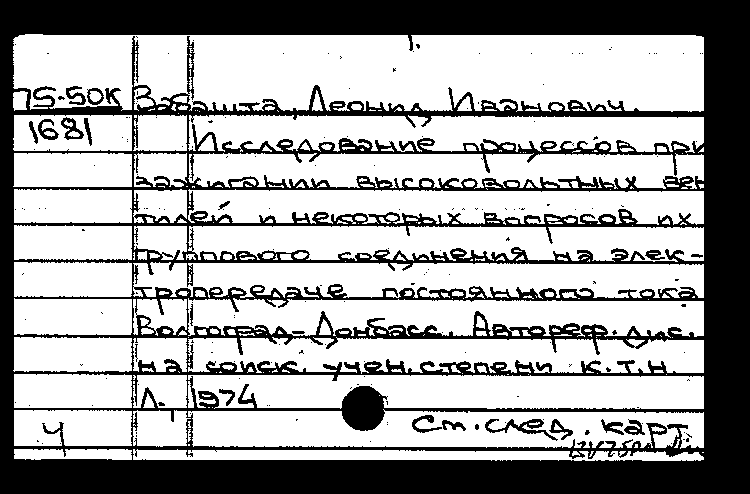 1.
75-50К Забашта, Леонид Иванович.
1681 Исследование процессов при
зажигании высоковольтных вен
тилей и некоторых вопросов их
группового соединения на элек-
тропередаче постоянного тока
Волгоград-Донбасс. Автореф. дис.
на соиск. учен. степени к.т.н.
Л., 1974
Ч См. след. карт